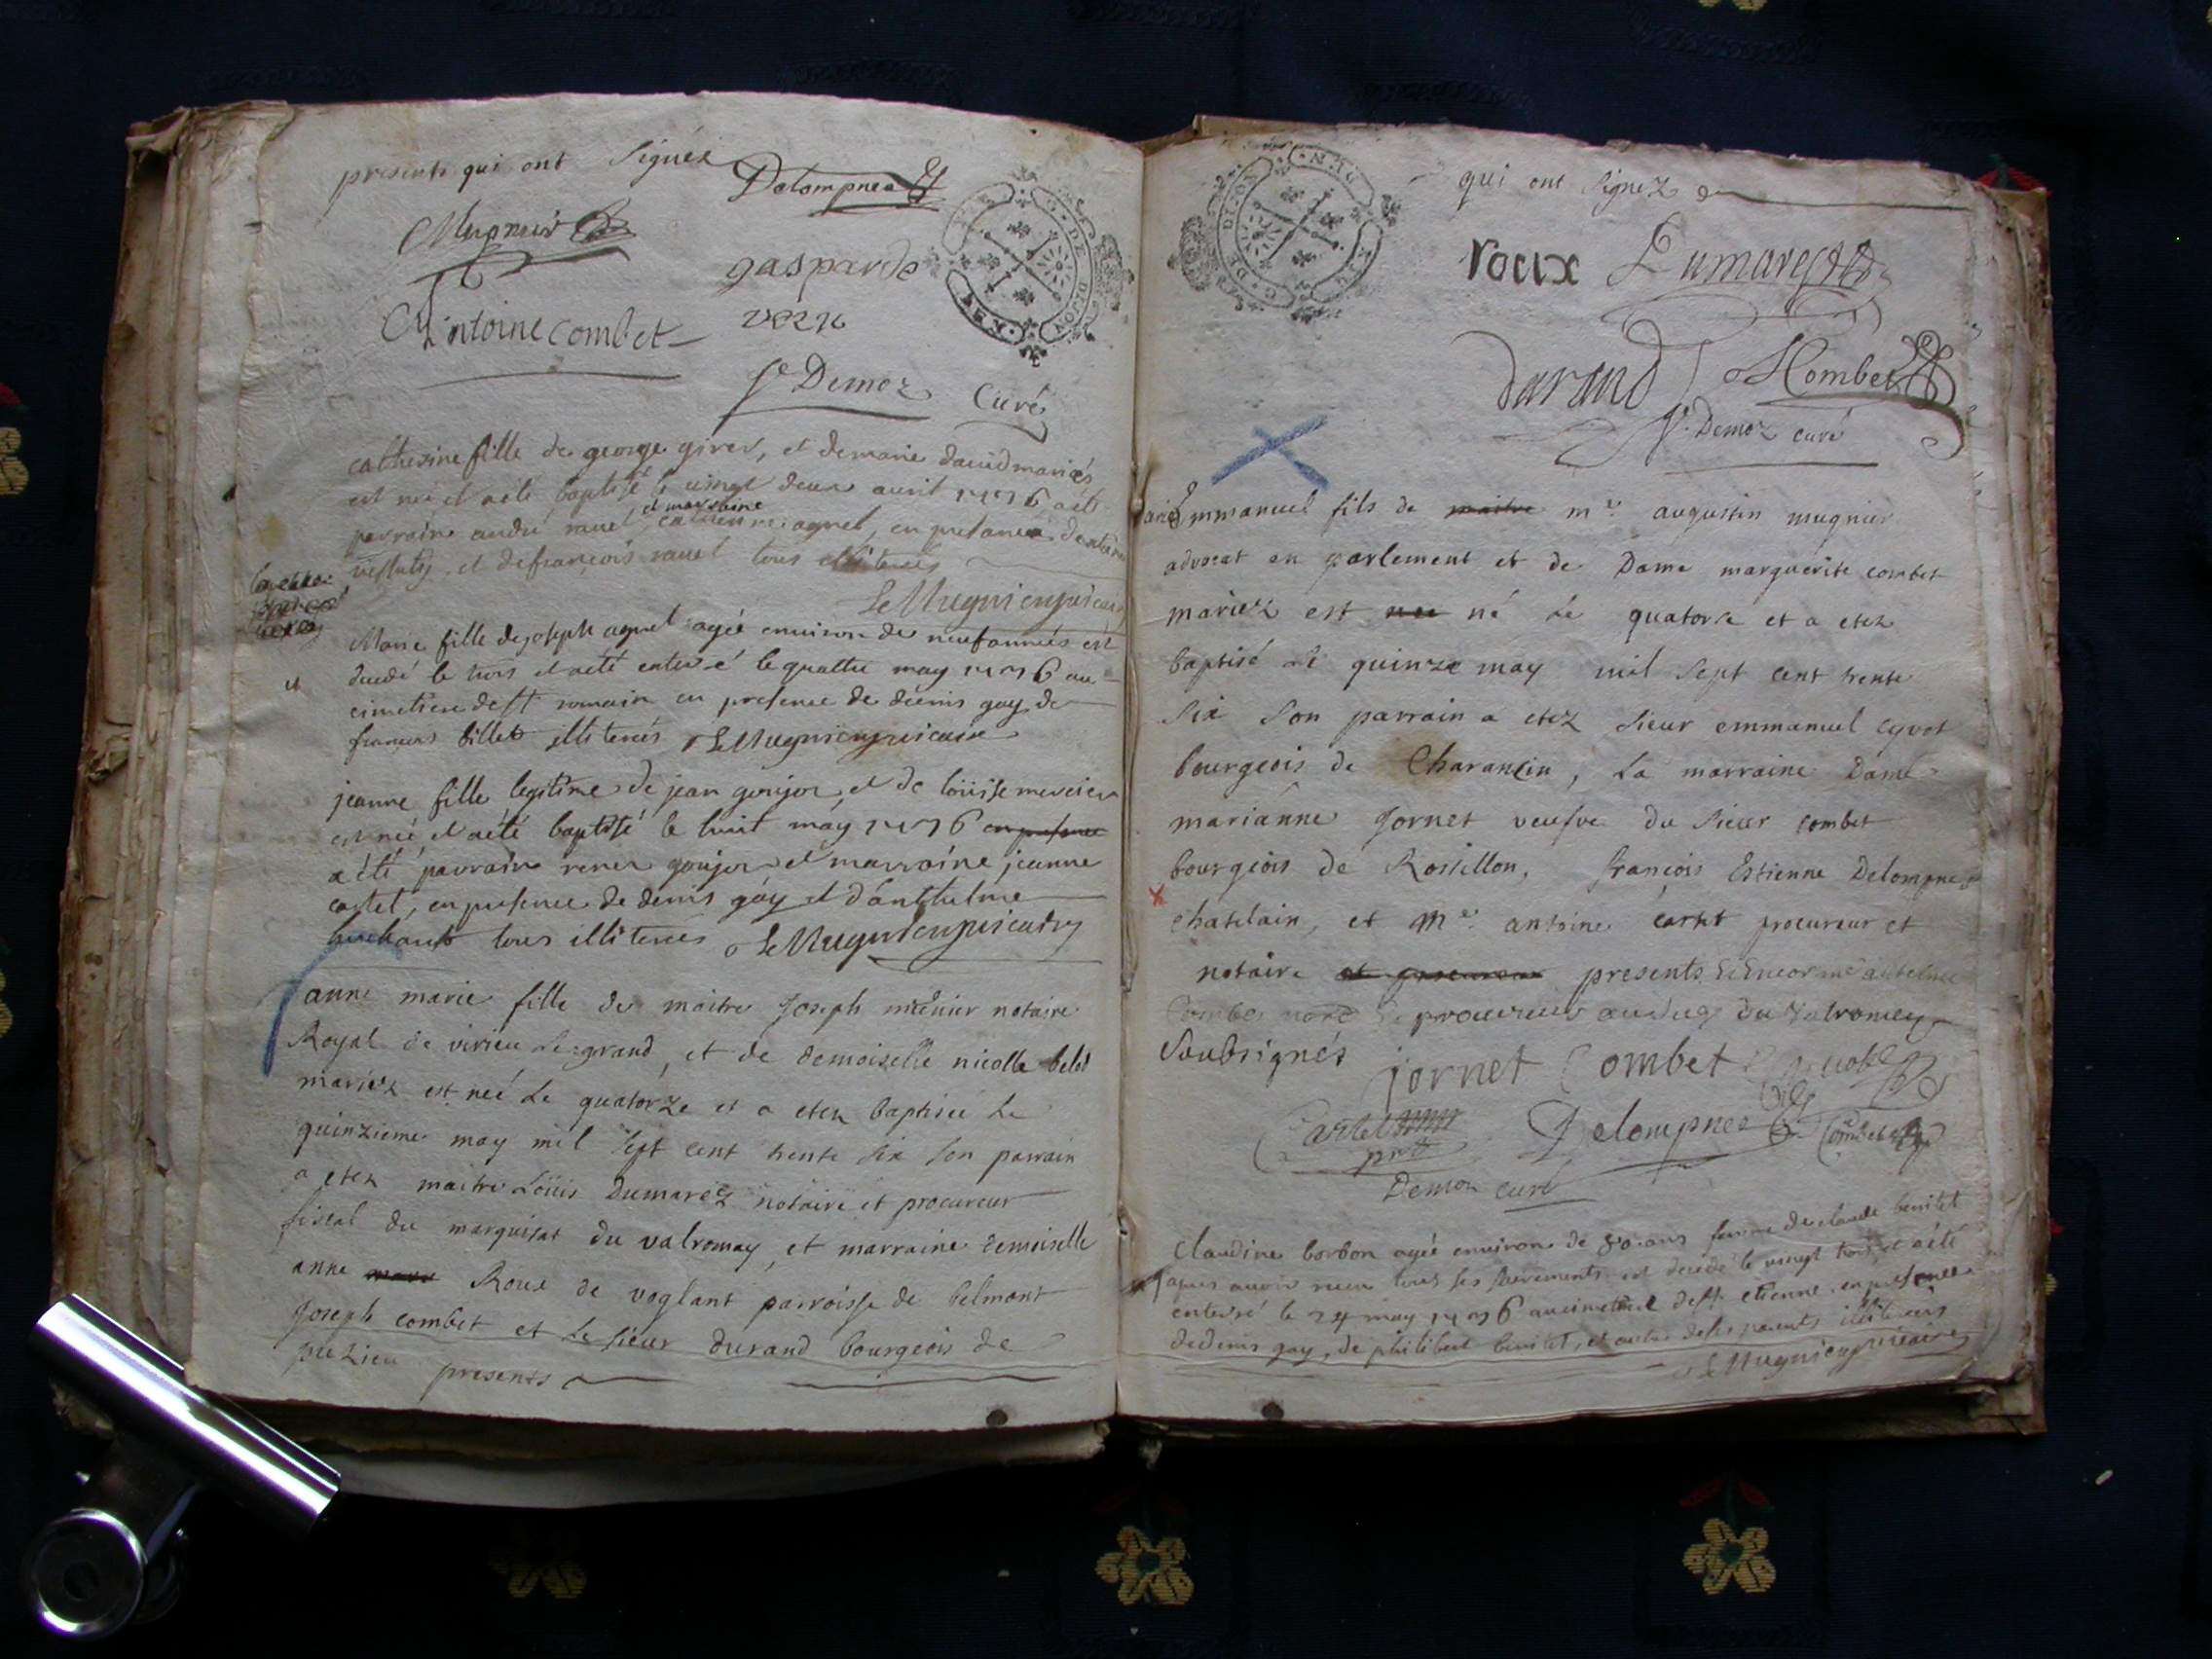 presents qui ont signés
Delompnes
Mugnier
gasparde
Antoine Combet
Demoz Curé
catherine fille de george girer, et de marie david mariés
est née et a été baptisé le vingt deux avril 1736 a été
et marraine
parrain andré ravet, catherine agnel, en presance
et de françois ravet tous illiterés
Le Mugnier vicaire
Marie fille de joseph agnel agée environ de neuf années est
decedé le trois et a été enterré le quattre may 1736 au
cimetiere de st romain en presence de denis gay de
francois billet illiterés Le Mugnier vicaire
jeanne fille legitime de jean goujon, et de loüise mercier
est née, et a été baptisé le huit may 1736 en presence
a été parrain goujon et marraine jeanne
castel, en presence de denis gay et d'anthelme
tous illiterés Le Mugnier vicaire
anne marie fille de maitre Joseph notaire
Royal de virieu le grand, et de demoiselle nicolle
mariez est née le quatorze et a etez baptisée le
quinzieme may mil sept cent trente six son parrain
a etez maitre Loüis Dumarez notaire et procureur
fiscal du marquisat du valromay, et marraine demoiselle
anne Roux de voglant parroisse de belmont
Joseph combet et le sieur durand bourgeois de
puzieu presents
G. DE DIJON
qui ont signez
roux Dumarest
durand Combet
Demoz curé
Emmanuel fils de maitre me augustin mugnier
advocat en parlement et de Dame marguerite combet
mariez est née né le quatorze et a etez
baptisé le quinze may mil sept cent trente
six son parrain a etez sieur emmanuel cyvot
bourgeois de Charancin, La marraine Dame
marianne Jornet veufve du sieur combet
bourgeois de Rossillon, françois Estienne Delompnes
chatelain, et Me antoine cartet procureur et
notaire et procureur presents
procureur du valromey
Soubsignés jornet Combet
Cartet Delompnes Combet
Demoz curé
claudine borbon agée environ de 80 ans femme de claude
apres avoir receu tous ses sacrements est decedé le vingt trois et a été
enterré le 24 may 1736 au cimetiere de st etienne en presence
de denis gay, de philibert et autres de ses parents illiterés
Le Mugnier vicaire